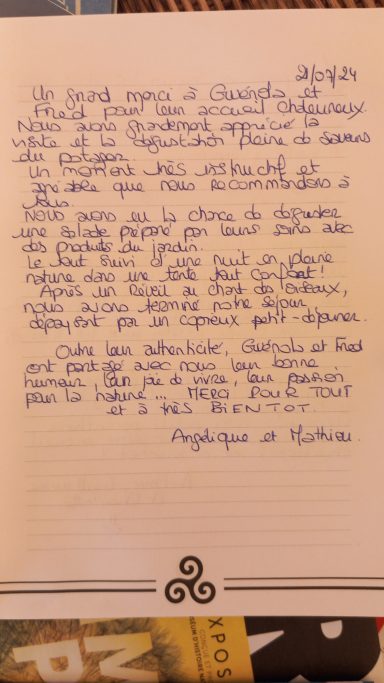 21/07/24
Un grand merci à Gwénola et
Fred pour leur accueil chaleureux.
Nous avons grandement apprécié la
visite et la dégustation pleine de saveurs
du potager.
Un moment très instructif et
agréable que nous recommandons à
tous.
Nous avons eu la chance de déguster
une salade préparé par leurs soins avec
des produits du jardin.
Le tout suivi d'une nuit en pleine
nature dans une tente tout confort!
Après un Réveil au chant des oiseaux,
nous avons terminé notre séjour
dépaysant par un copieux petit-déjeuner.
Outre leur authenticité, Gwénola et Fred
ont partagé avec nous leur bonne
humeur, leur joie de vivre, leur passion
pour la nature... MERCI POUR TOUT
et à très BIENTOT.
Angélique et Mathieu.
XPOS
CONÇUE ET
SEUM D'HISTOIRE